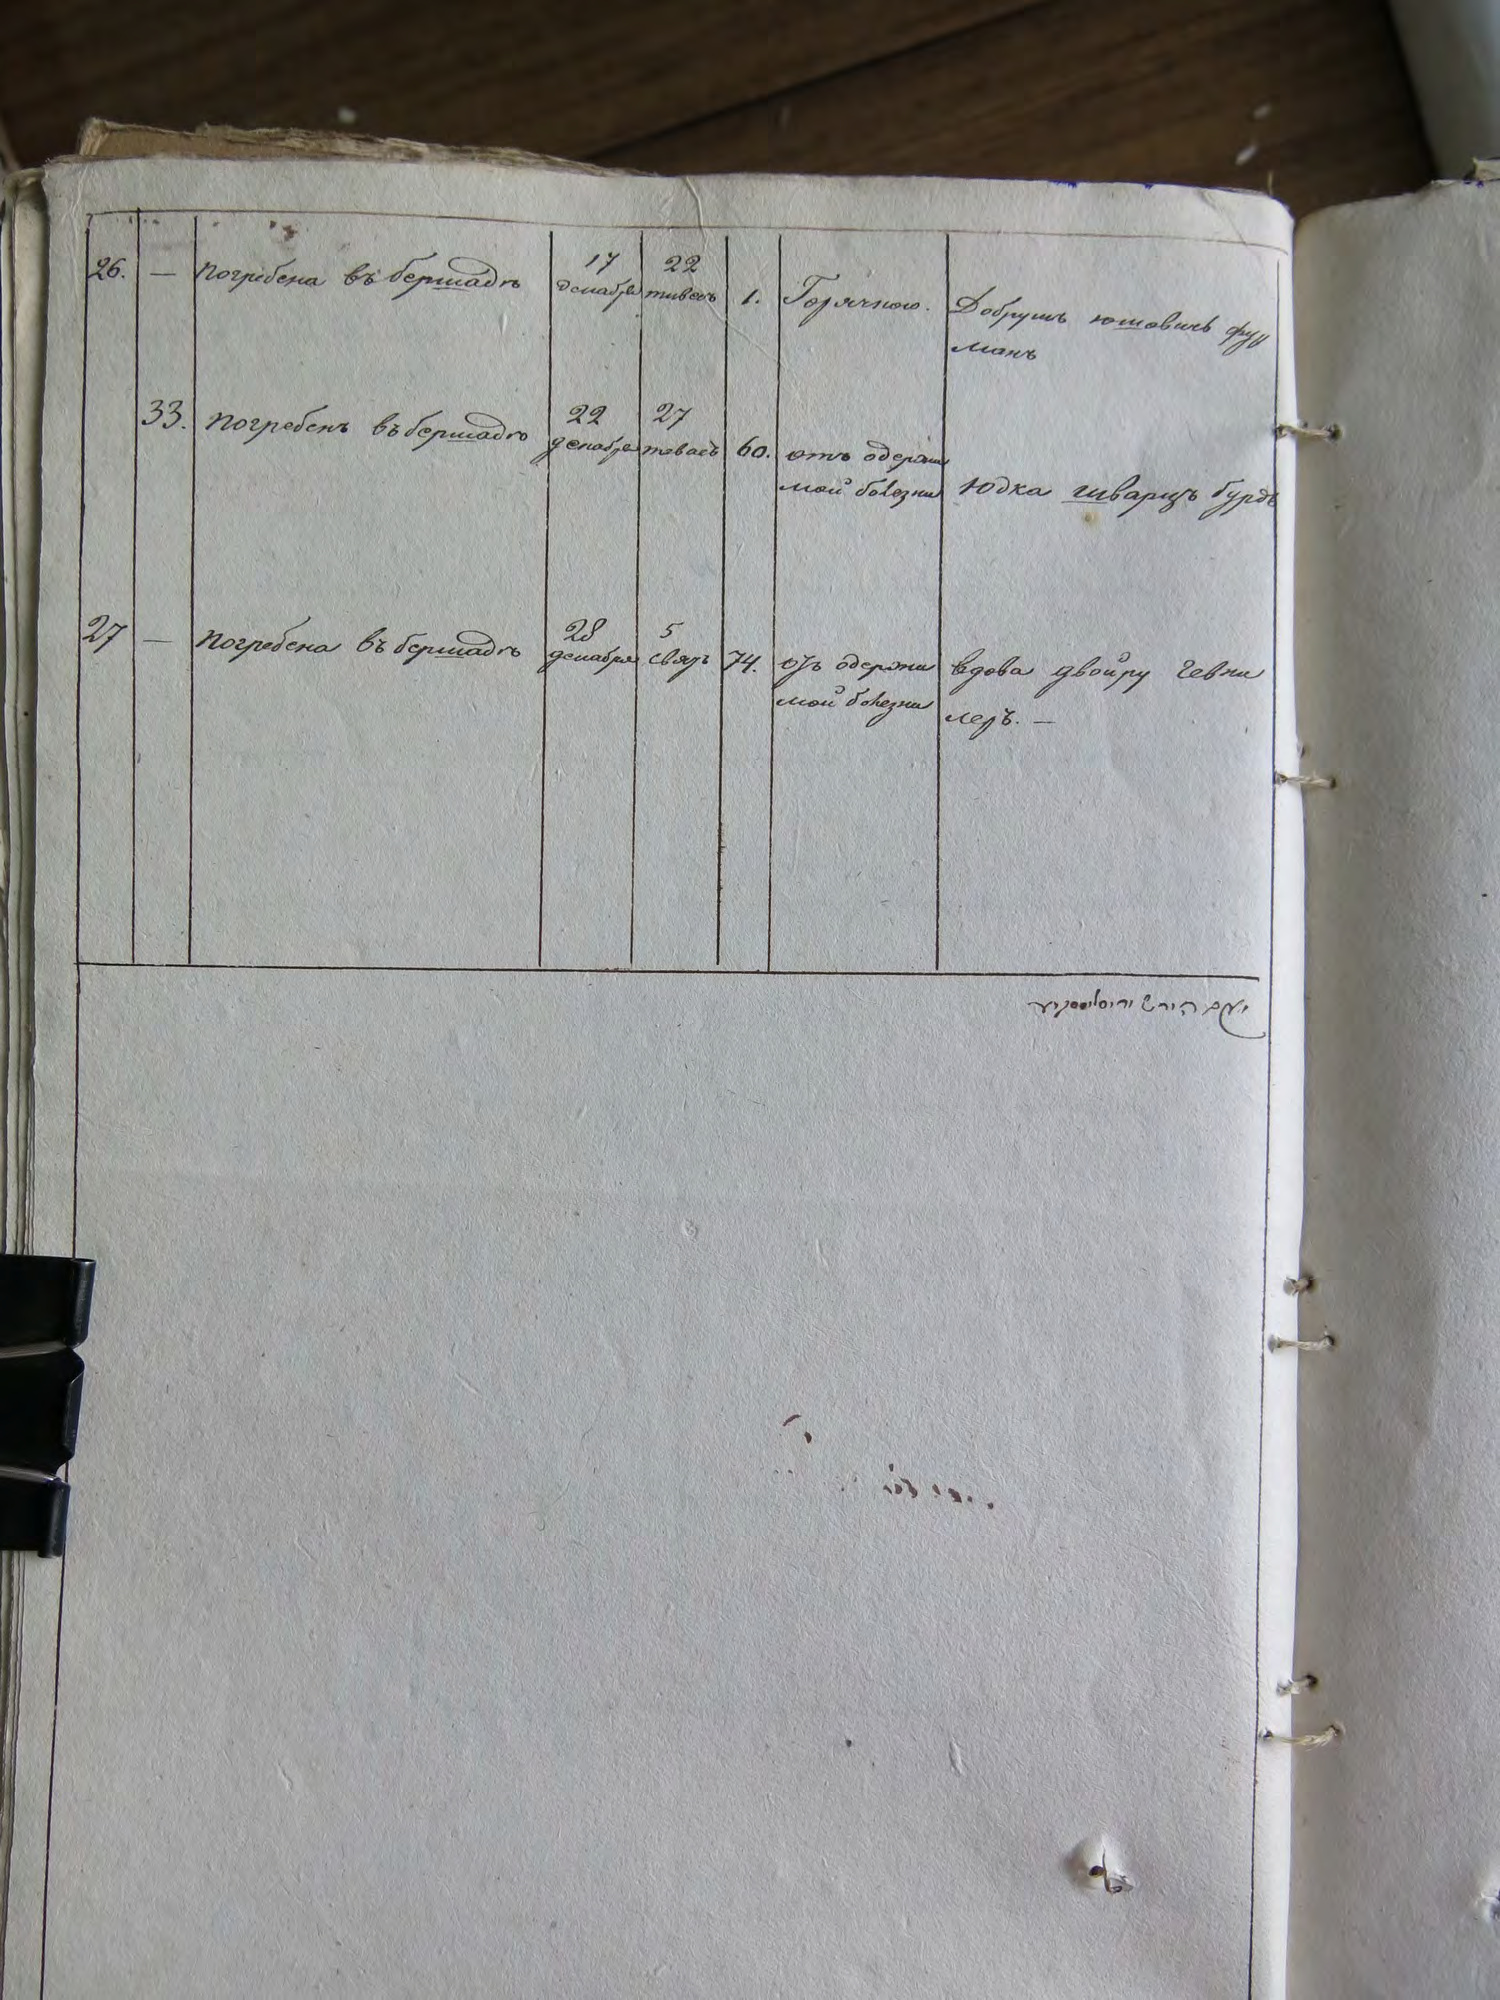 26. — погребена въ бершадѣ 17 декабря 22 тивесъ 1. Горячкою. Добрушъ юшовичъ фур
манъ
33. погребенъ въ бершадѣ 22 декабря 27 тевасъ 60. отъ одержи
мой болезни Юдка шварцъ бурдъ
27 — погребена въ бершадѣ 28 декабря 5 74. отъ одержи вдова двойру
мой болезни леръ. —
הירש